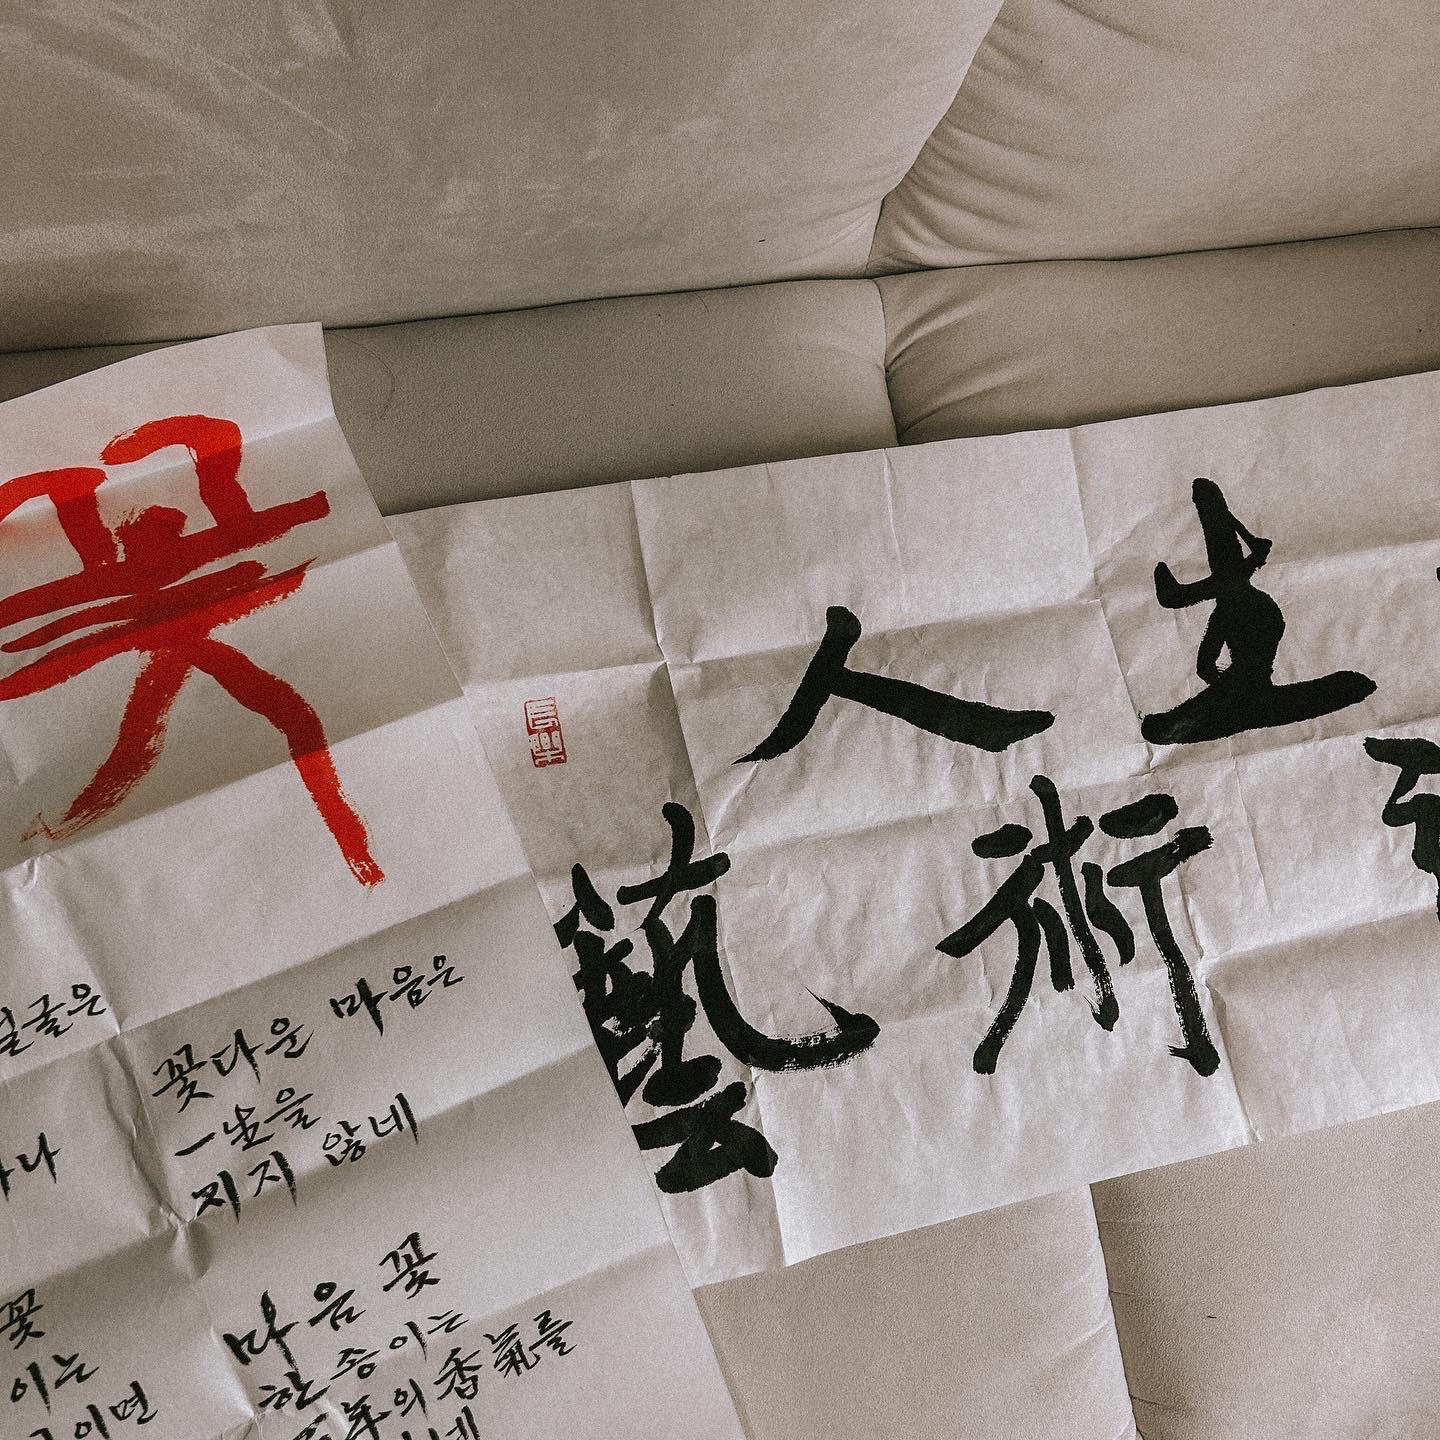 꽃
얼굴은
나
꽃
이는
이면
꽃다운 마음은
一生을
지지 않네
마음 꽃
한 송이는
年의 香氣를
네
人生
藝術